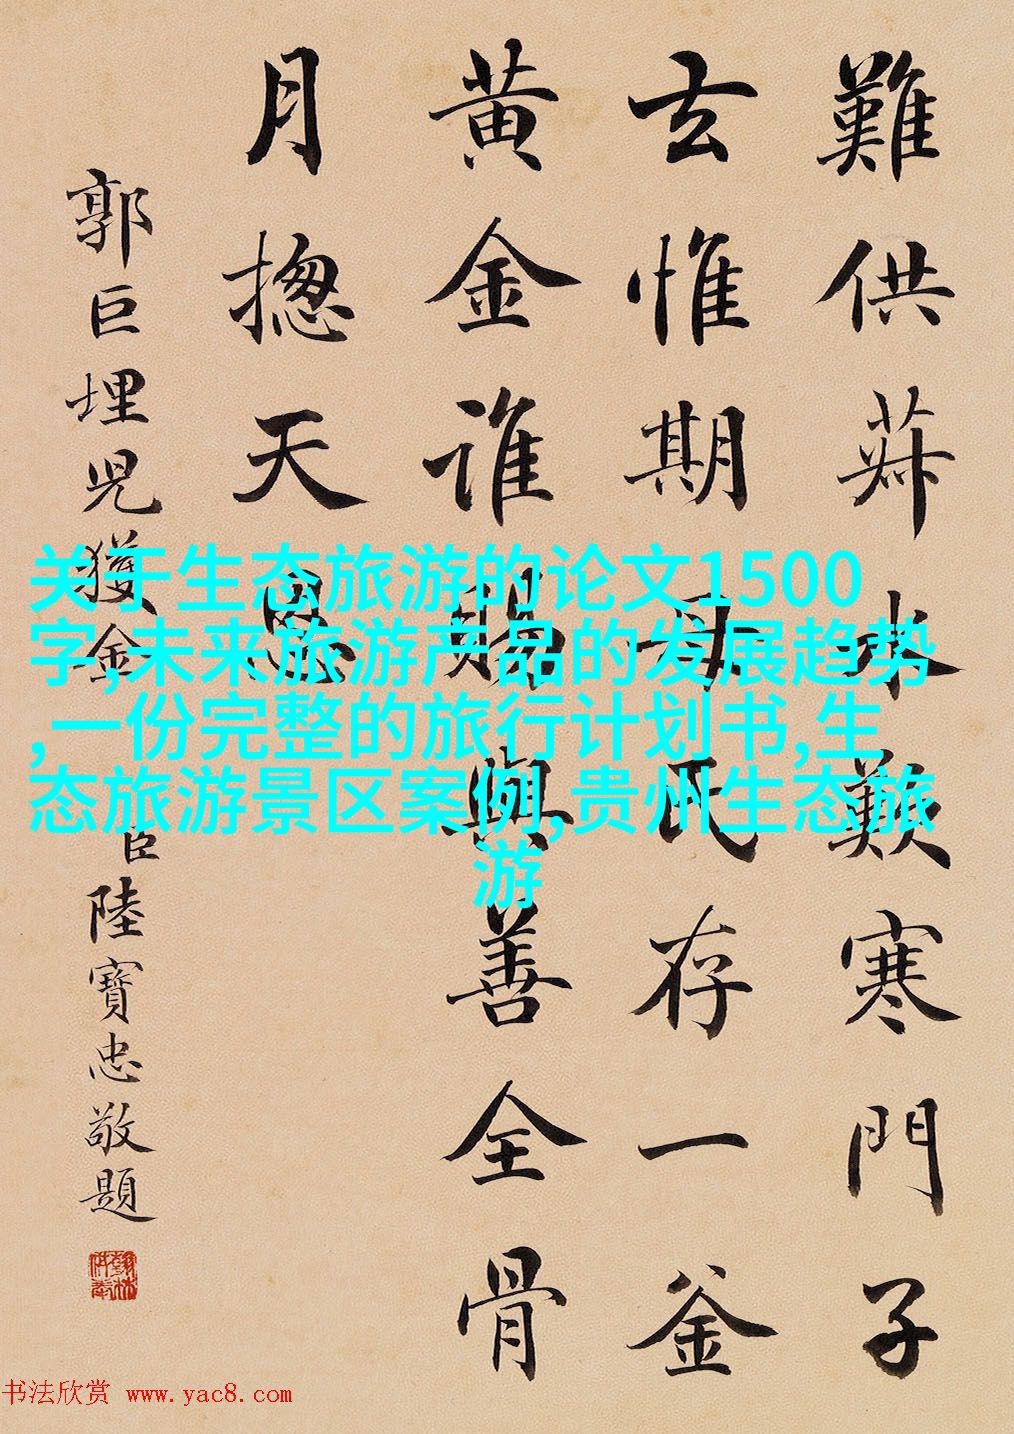 難供菽水歎寒門子
玄惟期母氏存一釜
黄金誰賜與善全骨
月揔天恩
郭巨埋児獲金
臣陸寶忠敬題
关于生态旅游的论文1500
字,未来旅游产品的发展趋势
,一份完整的旅行计划书,生
态旅游景区案例,贵州生态旅
游
书法欣赏 www.yac8.com